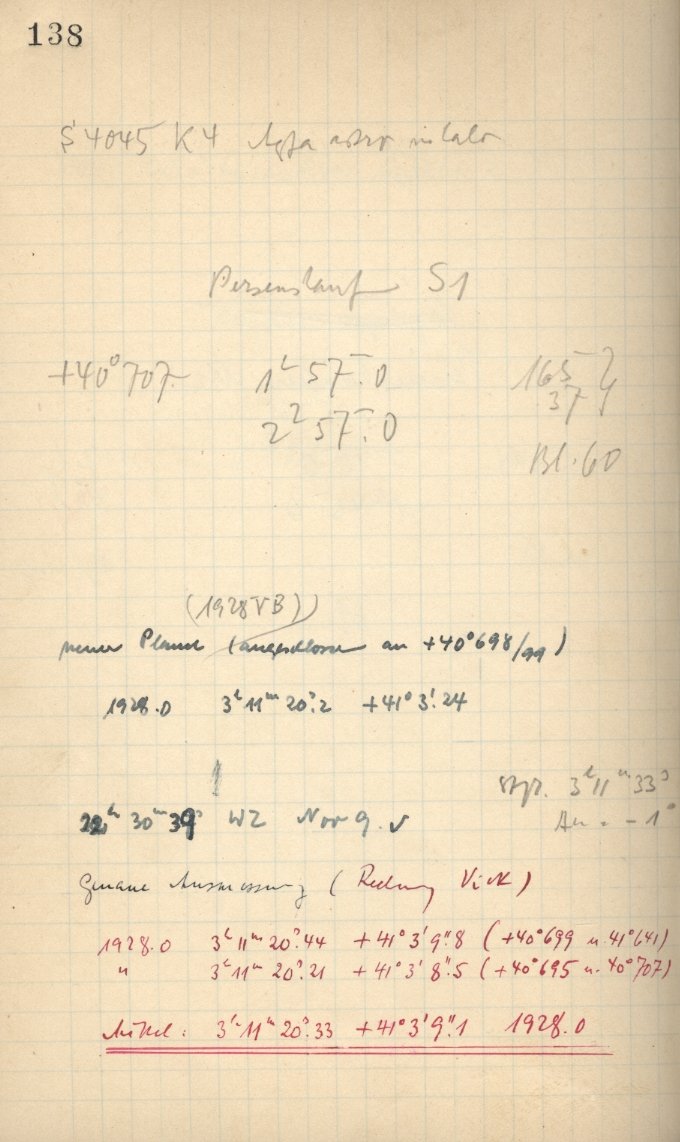 138
S 4045 K4 Agfa astro
S1
+40°707 1ʰ 57.0 165
2² 57.0 37
Bl. 60
(1928 VB)
neuer Planet (angeschlossen an +40°698/99)
1928.0 3ʰ11ᵐ20ˢ.2 +41°3'.24
3ʰ11ᵐ33ˢ
22ʰ30ᵐ39ˢ WZ Nov 9.
-1°
Genaue Ausmessung (Rechnung Vick)
1928.0 3ʰ11ᵐ20ˢ.44 +41°3'9".8 (+40°699 u. 41°641)
" 3ʰ11ᵐ20ˢ.21 +41°3'8".5 (+40°695 u. 40°707)
Mittel: 3ʰ11ᵐ20ˢ.33 +41°3'9".1 1928.0